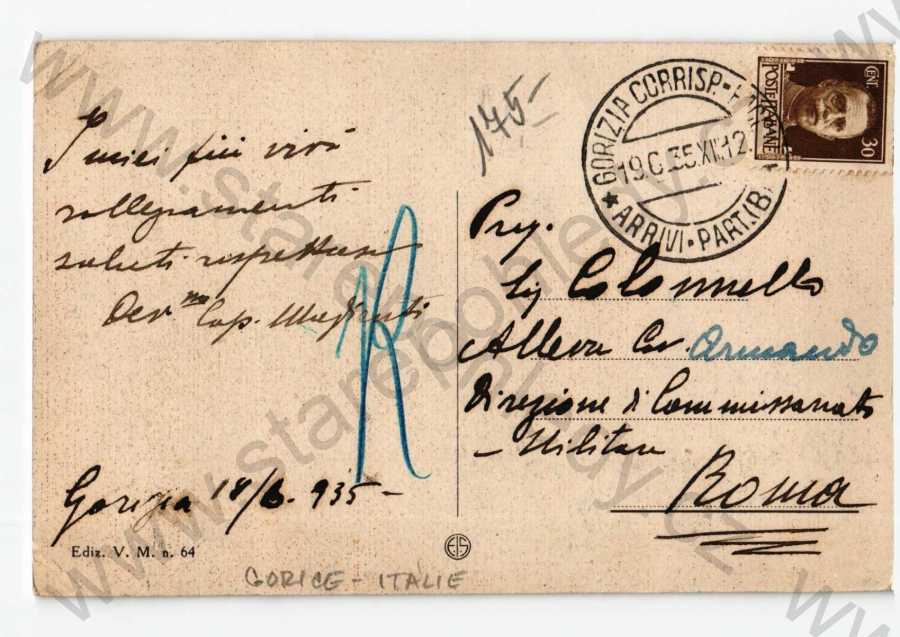 I miei più vivi
rallegramenti
saluti rispettosi
Dev.mo Cap.
Gorizia 18/6.935-
Ediz. V. M. n. 64
GORICE - ITALIE
175-
GORIZIA CORRISP.-
19.6.35.XIII.12
ARRIVI-PART.(B)
CENT.
30
POSTE ITALIANE
Preg.
Sig Colonnello
Alleva Cav. Armando
Direzione di Commissariato
- Militare
Roma
R
EIS
www.starepohledy.cz